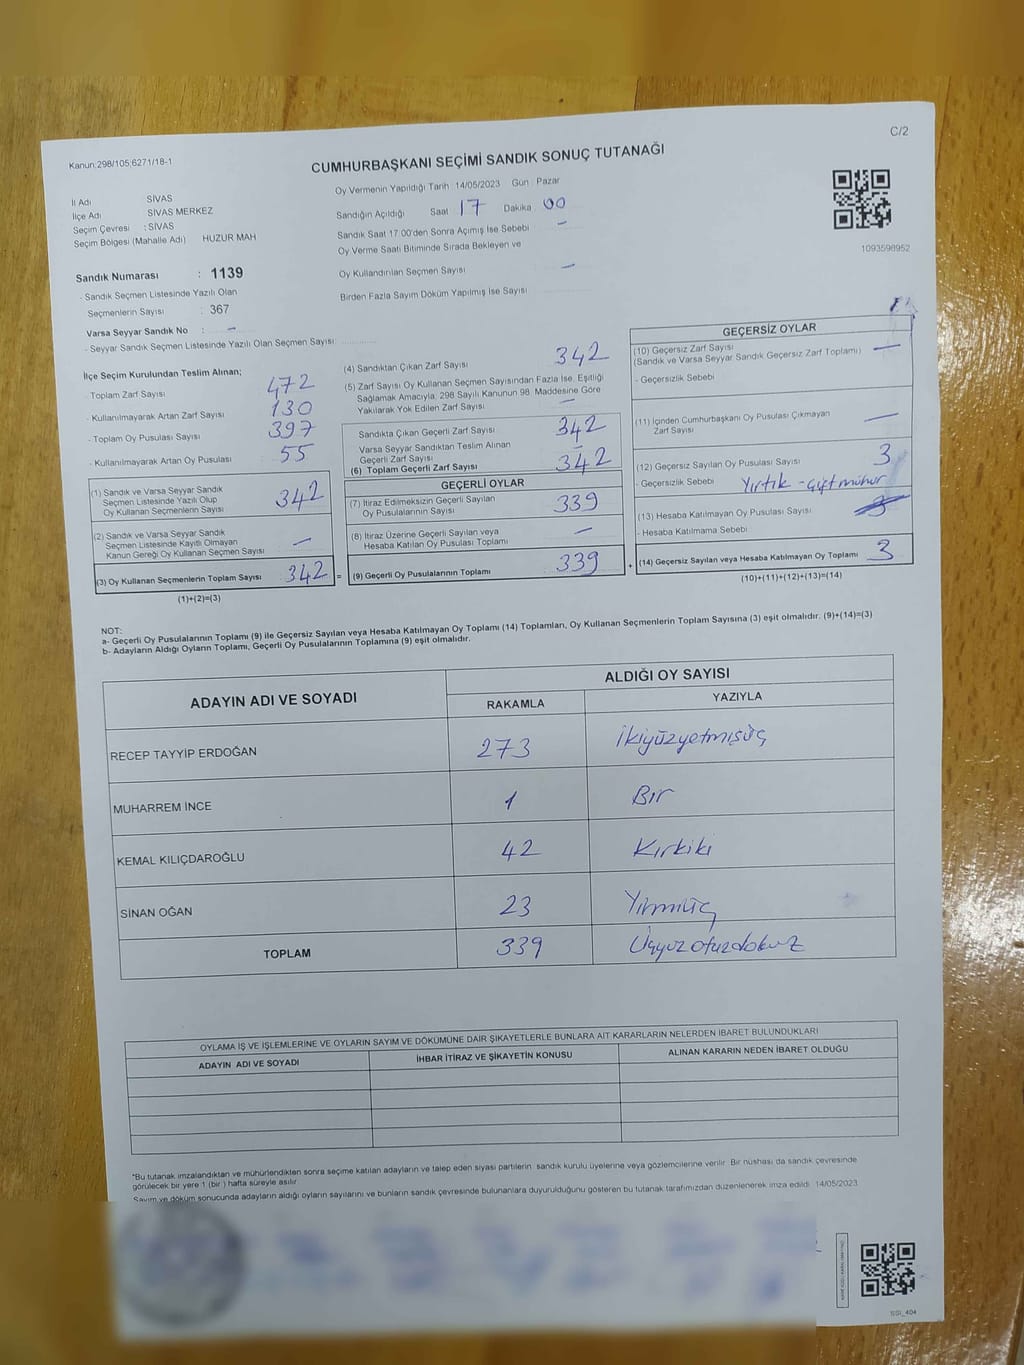 C/2
Kanun:298/105;6271/18-1
CUMHURBAŞKANI SEÇİMİ SANDIK SONUÇ TUTANAĞI
İl Adı SİVAS
İlçe Adı SİVAS MERKEZ
Seçim Çevresi : SİVAS
Seçim Bölgesi (Mahalle Adı) HUZUR MAH
Sandık Numarası : 1139
- Sandık Seçmen Listesinde Yazılı Olan
Seçmenlerin Sayısı : 367
Varsa Seyyar Sandık No : –
- Seyyar Sandık Seçmen Listesinde Yazılı Olan Seçmen Sayısı:
Oy Vermenin Yapıldığı Tarih 14/05/2023 Gün : Pazar
Sandığın Açıldığı Saat 17 Dakika 00
Sandık Saat 17.00'den Sonra Açımış İse Sebebi –
Oy Verme Saati Bitiminde Sırada Bekleyen ve
Oy Kullandırılan Seçmen Sayısı –
Birden Fazla Sayım Döküm Yapılmış İse Sayısı
1093598952
İlçe Seçim Kurulundan Teslim Alınan;
- Toplam Zarf Sayısı 472
- Kullanılmayarak Artan Zarf Sayısı 130
- Toplam Oy Pusulası Sayısı 397
- Kullanılmayarak Artan Oy Pusulası 55
(1) Sandık ve Varsa Seyyar Sandık
Seçmen Listesinde Yazılı Olup
Oy Kullanan Seçmenlerin Sayısı 342
(2) Sandık ve Varsa Seyyar Sandık
Seçmen Listesinde Kayıtlı Olmayan
Kanun Gereği Oy Kullanan Seçmen Sayısı –
(3) Oy Kullanan Seçmenlerin Toplam Sayısı 342 =
(1)+(2)=(3)
(4) Sandıktan Çıkan Zarf Sayısı 342
(5) Zarf Sayısı Oy Kullanan Seçmen Sayısından Fazla İse, Eşitliği
Sağlamak Amacıyla, 298 Sayılı Kanunun 98. Maddesine Göre
Yakılarak Yok Edilen Zarf Sayısı –
Sandıkta Çıkan Geçerli Zarf Sayısı 342
Varsa Seyyar Sandıktan Teslim Alınan
Geçerli Zarf Sayısı
(6) Toplam Geçerli Zarf Sayısı 342
GEÇERLİ OYLAR
(7) İtiraz Edilmeksizin Geçerli Sayılan
Oy Pusulalarının Sayısı 339
(8) İtiraz Üzerine Geçerli Sayılan veya
Hesaba Katılan Oy Pusulası Toplamı –
(9) Geçerli Oy Pusulalarının Toplamı 339 +
GEÇERSİZ OYLAR
(10) Geçersiz Zarf Sayısı
(Sandık ve Varsa Seyyar Sandık Geçersiz Zarf Toplamı) –
- Geçersizlik Sebebi
(11) İçinden Cumhurbaşkanı Oy Pusulası Çıkmayan
Zarf Sayısı –
(12) Geçersiz Sayılan Oy Pusulası Sayısı 3
- Geçersizlik Sebebi Yırtık - Çift mühür
(13) Hesaba Katılmayan Oy Pusulası Sayısı
- Hesaba Katılmama Sebebi
(14) Geçersiz Sayılan veya Hesaba Katılmayan Oy Toplamı 3
(10)+(11)+(12)+(13)=(14)
NOT:
a- Geçerli Oy Pusulalarının Toplamı (9) ile Geçersiz Sayılan veya Hesaba Katılmayan Oy Toplamı (14) Toplamları, Oy Kullanan Seçmenlerin Toplam Sayısına (3) eşit olmalıdır. (9)+(14)=(3)
b- Adayların Aldığı Oyların Toplamı, Geçerli Oy Pusulalarının Toplamına (9) eşit olmalıdır.
ADAYIN ADI VE SOYADI ALDIĞI OY SAYISI
RAKAMLA YAZIYLA
RECEP TAYYİP ERDOĞAN 273 İkiyüzyetmişüç
MUHARREM İNCE 1 Bir
KEMAL KILIÇDAROĞLU 42 Kırkiki
SİNAN OĞAN 23 Yirmiüç
TOPLAM 339 Üçyüzotuzdokuz
OYLAMA İŞ VE İŞLEMLERİNE VE OYLARIN SAYIM VE DÖKÜMÜNE DAİR ŞİKAYETLERLE BUNLARA AİT KARARLARIN NELERDEN İBARET BULUNDUKLARI
ADAYIN ADI VE SOYADI İHBAR İTİRAZ VE ŞİKAYETİN KONUSU ALINAN KARARIN NEDEN İBARET OLDUĞU
*Bu tutanak imzalandıktan ve mühürlendikten sonra seçime katılan adayların ve talep eden siyasi partilerin sandık kurulu üyelerine veya gözlemcilerine verilir. Bir nüshası da sandık çevresinde
görülecek bir yere 1 (bir) hafta süreyle asılır
Sayım ve döküm sonucunda adayların aldığı oyların sayılarını ve bunların sandık çevresinde bulunanlara duyurulduğunu gösteren bu tutanak tarafımızdan düzenlenerek imza edildi. 14/05/2023